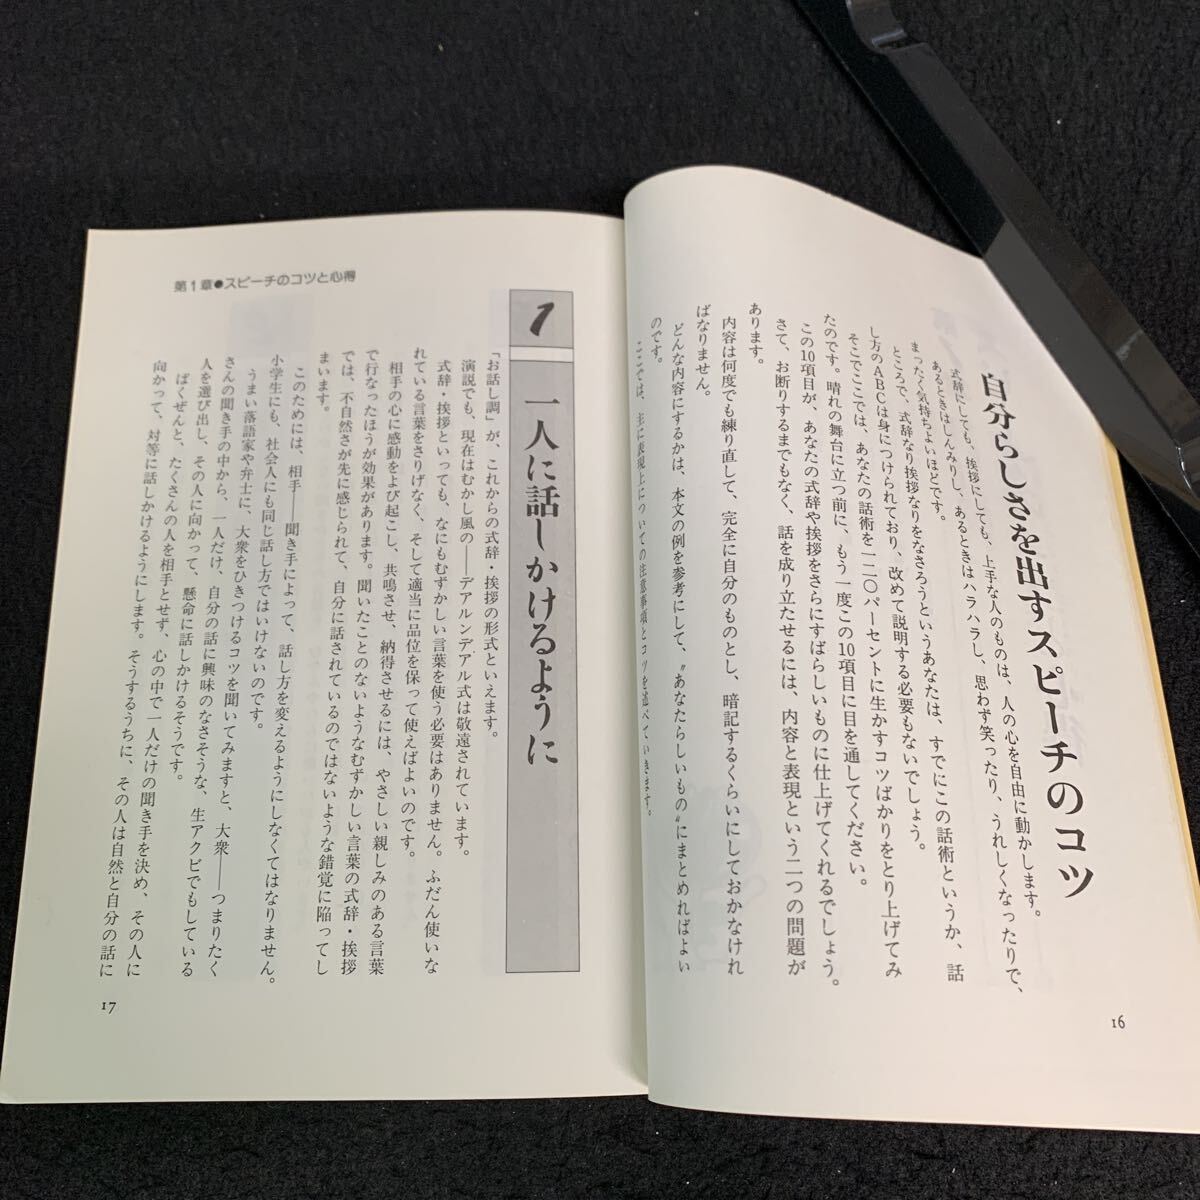 自分らしさを出すスピーチのコツ
式辞にしても、挨拶にしても、上手な人のものは、人の心を自由に動かします。
あるときはしんみりし、あるときはハラハラし、思わず笑ったり、うれしくなったりで、
まったく気持ちよいほどです。
ところで、式辞なり挨拶なりをなさろうというあなたは、すでにこの話術というか、話
し方のABCは身につけられており、改めて説明する必要もないでしょう。
そこでここでは、あなたの話術を一二〇パーセントに生かすコツばかりをとり上げてみ
たのです。晴れの舞台に立つ前に、もう一度この10項目に目を通してください。
この10項目が、あなたの式辞や挨拶をさらにすばらしいものに仕上げてくれるでしょう。
さて、お断りするまでもなく、話を成り立たせるには、内容と表現という二つの問題が
あります。
内容は何度でも練り直して、完全に自分のものとし、暗記するくらいにしておかなけれ
ばなりません。
どんな内容にするかは、本文の例を参考にして、〝あなたらしいもの〟にまとめればよい
のです。
ここでは、主に表現上についての注意事項とコツを述べていきます。
16
第1章●スピーチのコツと心得
1
一人に話しかけるように
「お話し調」が、これからの式辞・挨拶の形式といえます。
演説でも、現在はむかし風の——デアルンデアル式は敬遠されています。
式辞・挨拶といっても、なにもむずかしい言葉を使う必要はありません。ふだん使いな
れている言葉をさりげなく、そして適当に品位を保って使えばよいのです。
相手の心に感動をよび起こし、共鳴させ、納得させるには、やさしい親しみのある言葉
で行なったほうが効果があります。聞いたことのないようなむずかしい言葉の式辞・挨拶
では、不自然さが先に感じられて、自分に話されているのではないような錯覚に陥ってし
まいます。
このためには、相手——聞き手によって、話し方を変えるようにしなくてはなりません。
小学生にも、社会人にも同じ話し方ではいけないのです。
うまい落語家や弁士に、大衆をひきつけるコツを聞いてみますと、大衆——つまりたく
さんの聞き手の中から、一人だけ、自分の話に興味のなさそうな、生アクビでもしている
人を選び出し、その人に向かって、懸命に話しかけるそうです。
ばくぜんと、たくさんの人を相手とせず、心の中で一人だけの聞き手を決め、その人に
向かって、対等に話しかけるようにします。そうするうちに、その人は自然と自分の話に
17